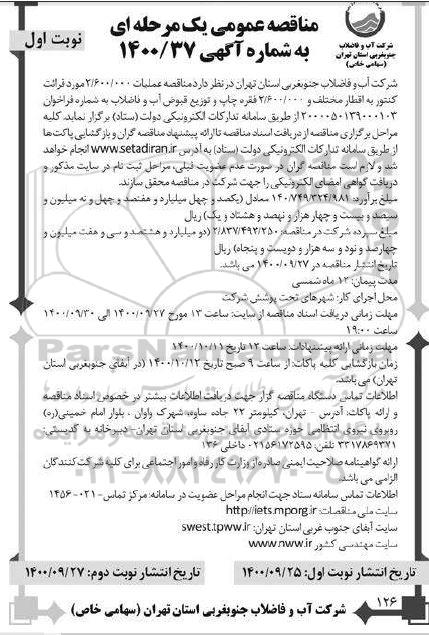 مناقصه عمومی یک مرحله ای
به شماره آگهی ۱۴۰۰/۳۷
نوبت اول
شرکت آب و فاضلاب
جنوبغربی استان تهران
(سهامی خاص)
شرکت آب و فاضلاب جنوبغربی استان تهران در نظر دارد مناقصه عملیات ۲/۶۰۰/۰۰۰ مورد قرائت
کنتور به اقطار مختلف و ۲/۶۰۰/۰۰۰ فقره چاپ و توزیع قبوض آب و فاضلاب به شماره فراخوان
۲۰۰۰۰۵۰۱۳۹۰۰۰۱۰۳ از طریق سامانه تدارکات الکترونیکی دولت (ستاد) برگزار نماید. کلیه
مراحل برگزاری مناقصه از دریافت اسناد مناقصه تا ارائه پیشنهاد مناقصه گران و بازگشایی پاکت‌ها
از طریق سامانه تدارکات الکترونیکی دولت (ستاد) به آدرس www.setadiran.ir انجام خواهد
شد و لازم است مناقصه گران در صورت عدم عضویت قبلی، مراحل ثبت نام در سایت مذکور و
دریافت گواهی امضای الکترونیکی را جهت شرکت در مناقصه محقق سازند.
مبلغ برآورد: ۱۴۰/۷۴۹/۳۲۴/۹۸۱ معادل (یکصد و چهل میلیارد و هفتصد و چهل و نه میلیون و
سیصد و بیست و چهار هزار و نهصد و هشتاد و یک) ریال
مبلغ سپرده شرکت در مناقصه: ۲/۸۳۷/۴۹۳/۲۵۰ (دو میلیارد و هشتصد و سی و هفت میلیون و
چهارصد و نود و سه هزار و دویست و پنجاه) ریال
تاریخ انتشار مناقصه در ۱۴۰۰/۰۹/۲۷ می باشد.
مدت پیمان: ۱۲ ماه شمسی
محل اجرای کار: شهرهای تحت پوشش شرکت
مهلت زمانی دریافت اسناد مناقصه از سایت: ساعت ۱۳ مورخ ۱۴۰۰/۰۹/۲۷ الی ۱۴۰۰/۰۹/۳۰
ساعت ۱۹:۰۰
مهلت زمانی ارائه پیشنهادات: ساعت ۱۲ تاریخ ۱۴۰۰/۱۰/۱۱
زمان بازگشایی کلیه پاکات: از ساعت ۹ صبح تاریخ ۱۴۰۰/۱۰/۱۲ (در آبفای جنوبغربی استان
تهران) می باشد.
اطلاعات تماس دستگاه مناقصه گزار جهت دریافت اطلاعات بیشتر در خصوص اسناد مناقصه
و ارائه پاکات: آدرس - تهران، کیلومتر ۲۲ جاده ساوه، شهرک واوان ، بلوار امام خمینی(ره)
روبروی نیروی انتظامی حوزه ستادی آبفای جنوبغربی استان تهران- دبیرخانه به کدپستی:
۳۳۱۷۸۶۹۳۷۱ تلفن: ۰۲۱۵۶۱۷۲۵۹۵ داخلی ۱۳۶
ارائه گواهینامه صلاحیت ایمنی صادره از وزارت کار رفاه و امور اجتماعی برای کلیه شرکت کنندگان
الزامی می باشد.
اطلاعات تماس سامانه ستاد جهت انجام مراحل عضویت در سامانه: مرکز تماس- ۰۲۱-۱۴۵۶
سایت ملی مناقصات: http//iets.mporg.ir
سایت آبفای جنوب غربی استان تهران: swest.tpww.ir
سایت مهندسی کشور www.nww.ir
تاریخ انتشار نوبت اول: ۱۴۰۰/۰۹/۲۵
تاریخ انتشار نوبت دوم: ۱۴۰۰/۰۹/۲۷
۱۲۶
شرکت آب و فاضلاب جنوبغربی استان تهران (سهامی خاص)